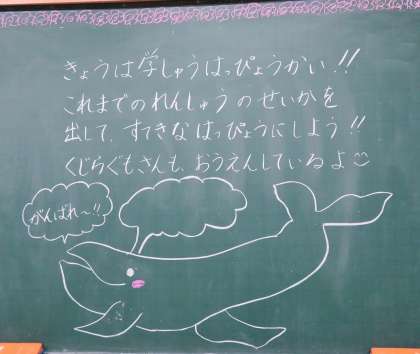 きょうは学しゅうはっぴょうかい!!
これまでのれんしゅうのせいかを
出して、すてきなはっぴょうにしよう!!
くじらぐもさんも、おうえんしているよ
がんばれ〜!!